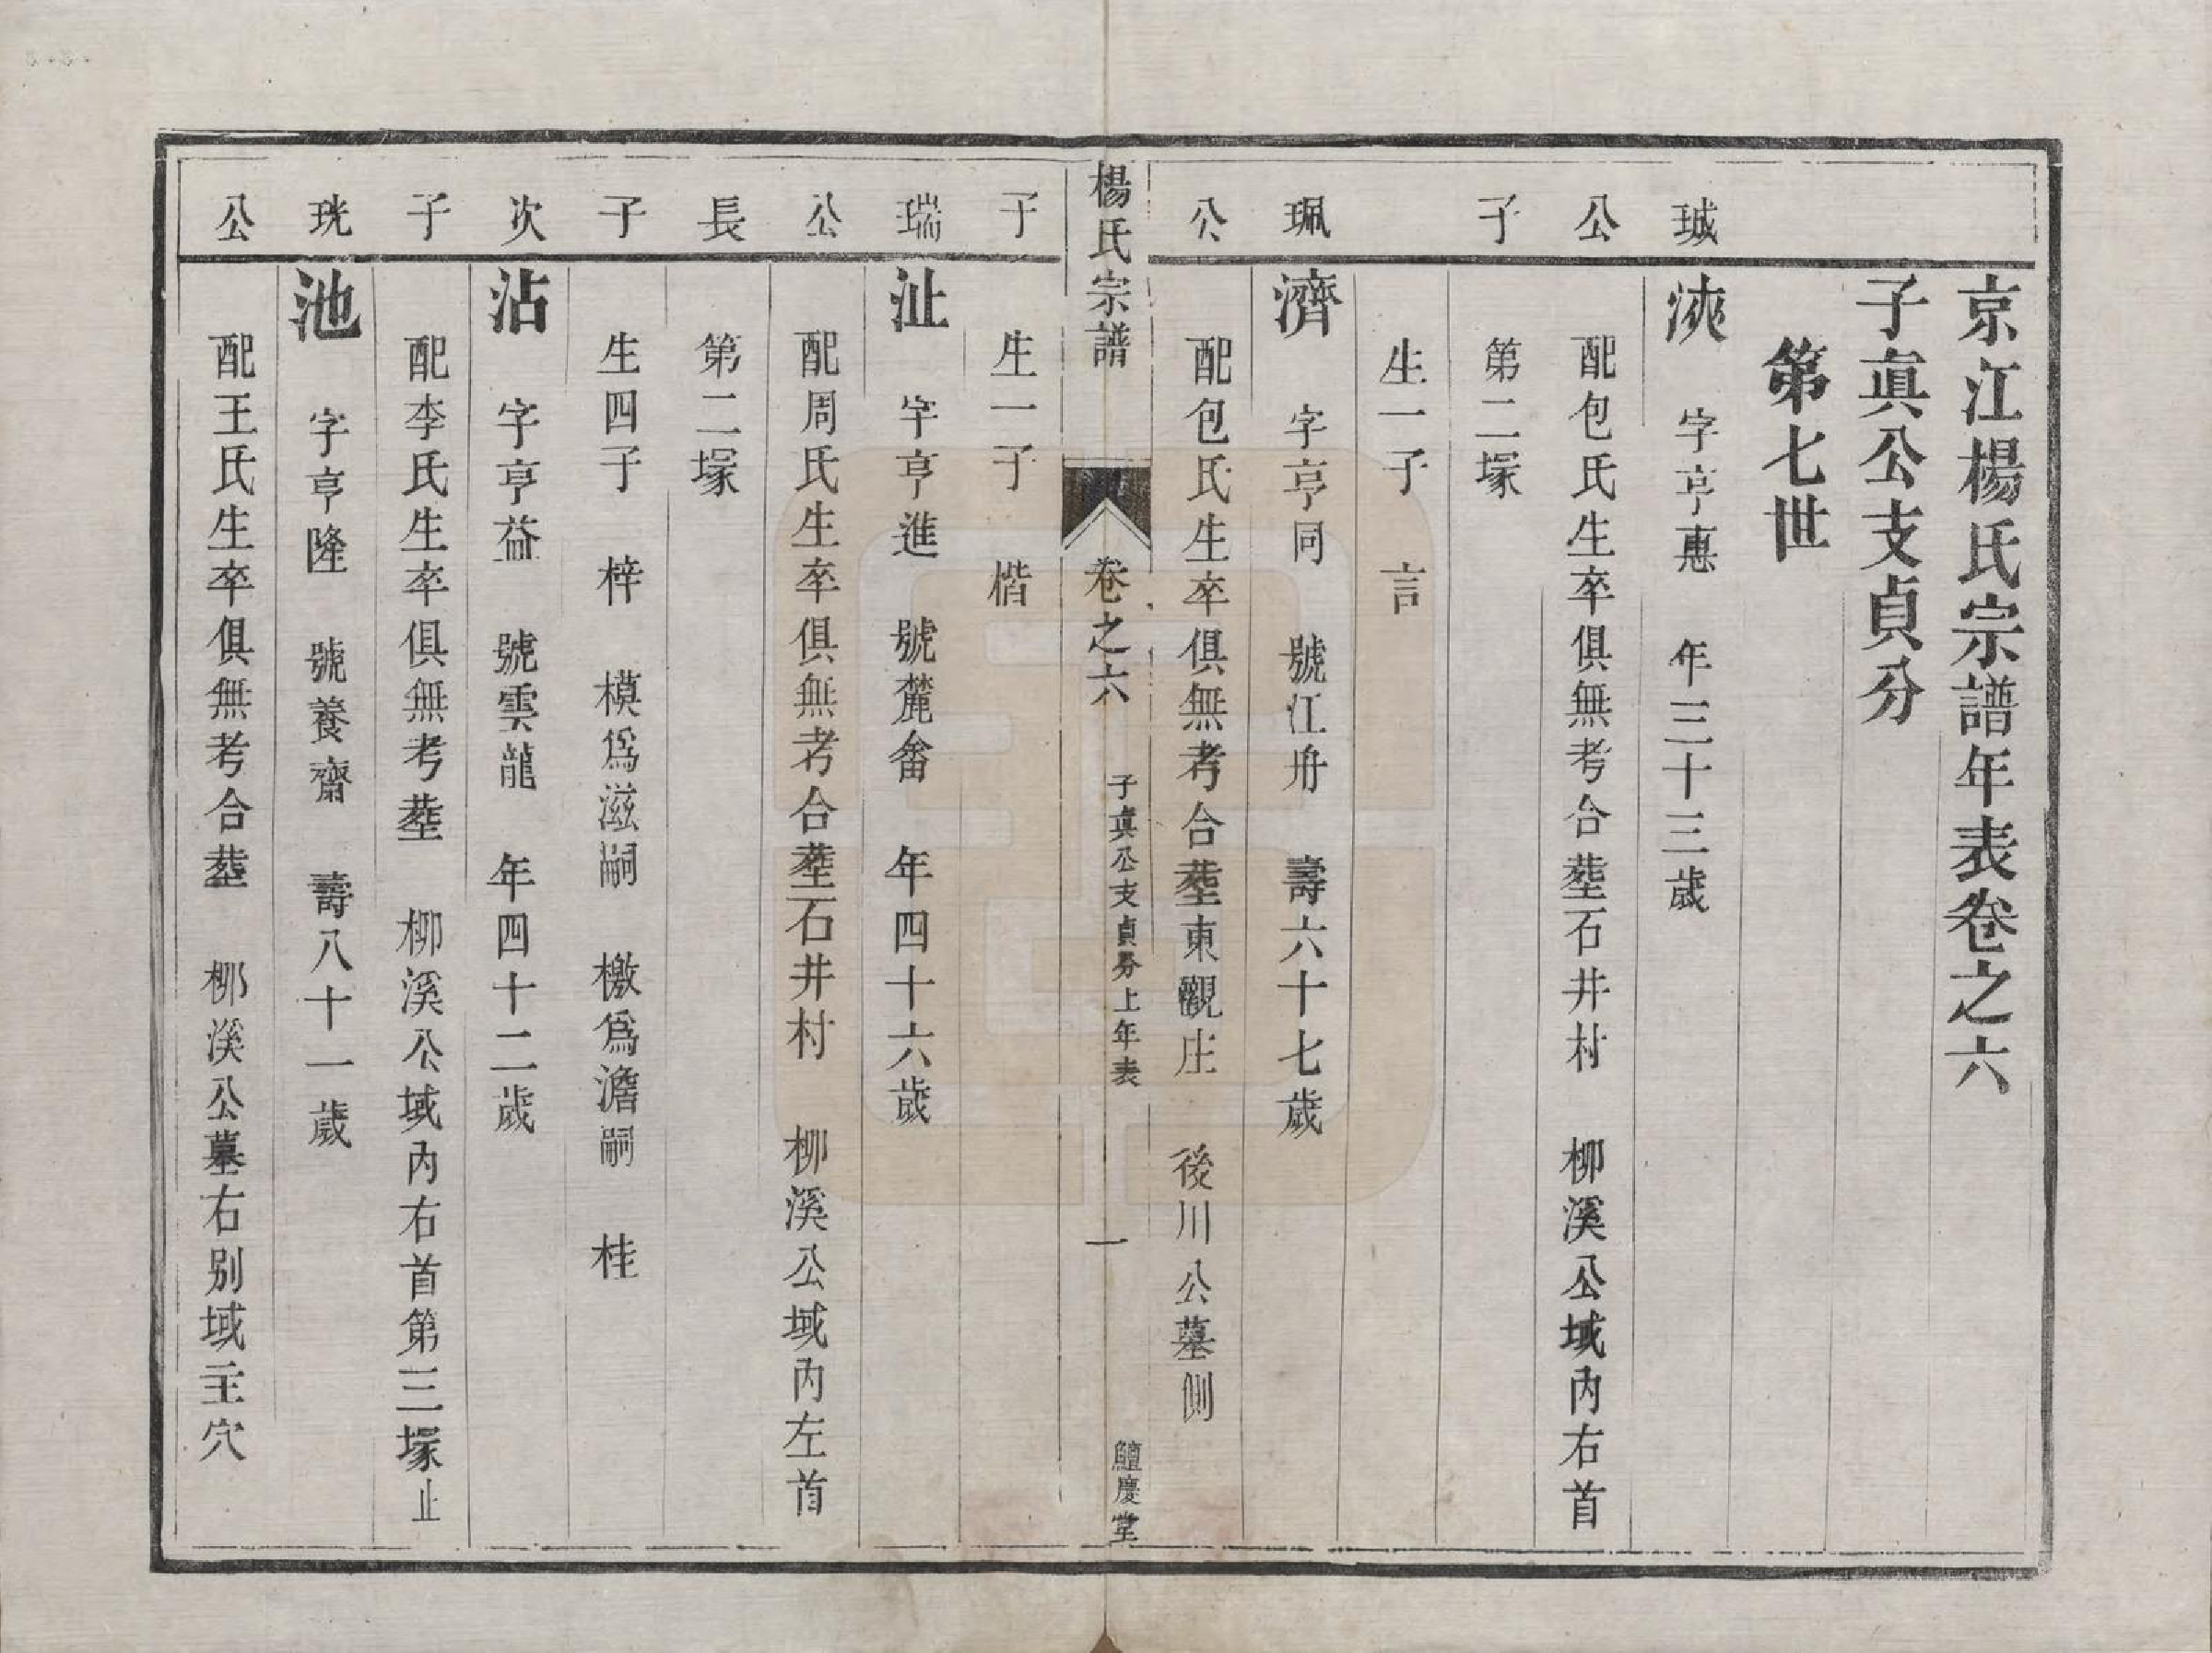 京江楊氏宗譜年表卷之六
子真公支貞分
第七世
珹
浹 字亨惠 年三十三歲
公
配包氏生卒俱無考合塟石井村 柳溪公域內右首
子
第二塚
生一子 言
珮
濟 字亨同 號江舟 壽六十七歲
公
配包氏生卒俱無考合塟東觀庄 後川公墓側
楊氏宗譜 卷之六 子真公支貞分上年表 一 鱣慶堂
子
生一子 楷
瑞
沚 字亨進 號麓畬 年四十六歲
公
配周氏生卒俱無考合塟石井村 柳溪公域內左首
長
第二塚
子
生四子 梓 模為滋嗣 檄為澹嗣 桂
次
沾 字亨益 號雲龍 年四十二歲
子
配李氏生卒俱無考塟 柳溪公域內右首第三塚止
珖
池 字亨隆 號養齋 壽八十一歲
公
配王氏生卒俱無考合塟 柳溪公墓右別域主穴